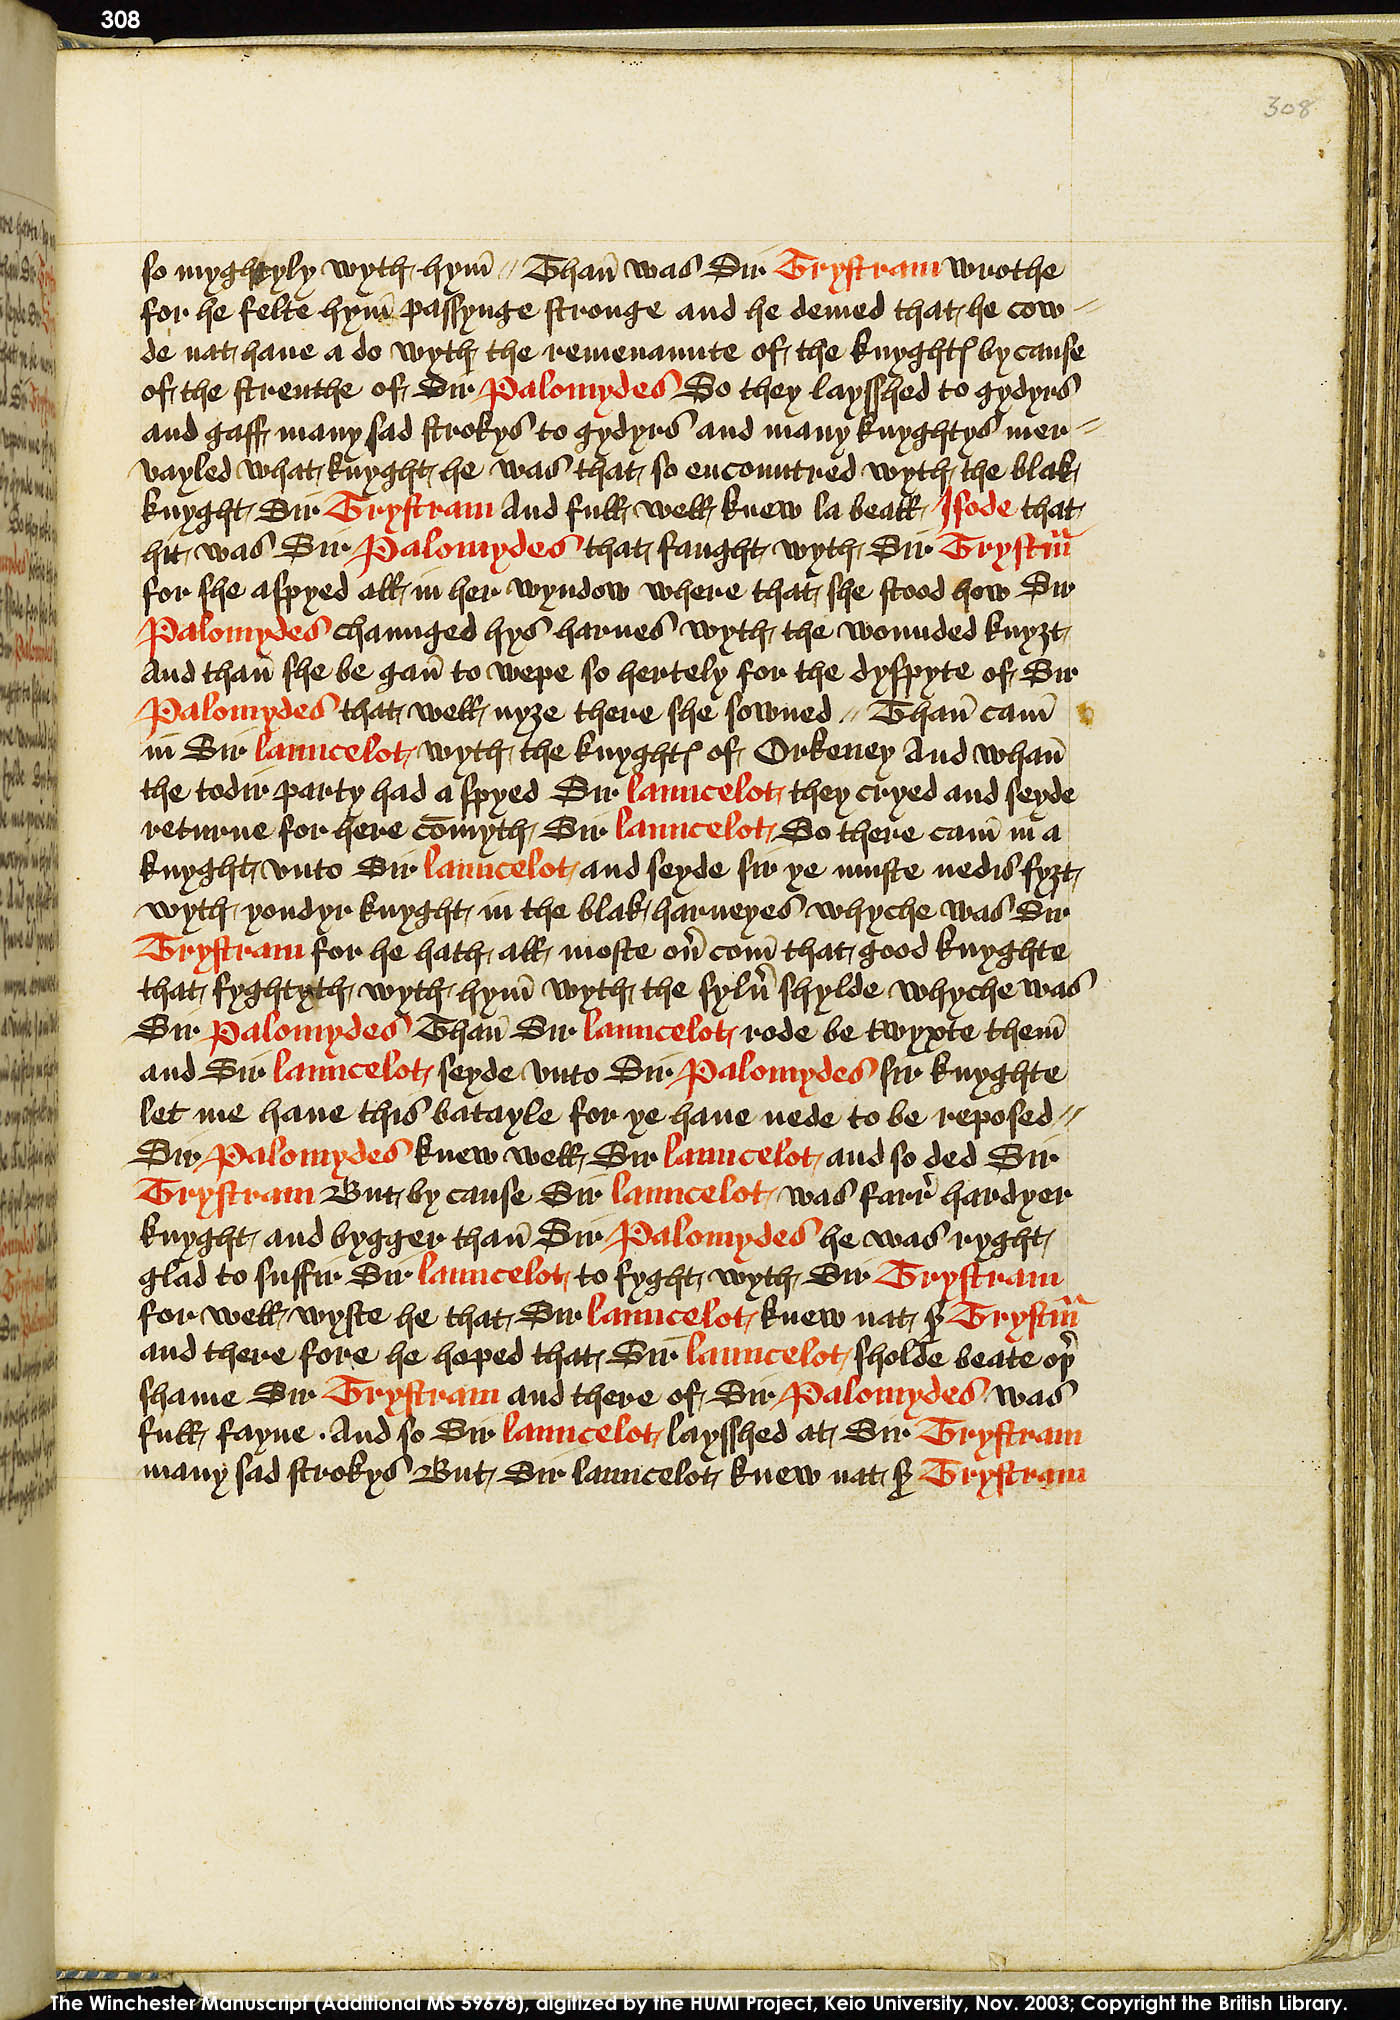 308
308
so myghtyly wyth hym̄ // Than̄ was Sir Trystram wrothe
for he felte hym̄ passynge stronge and he demed that he cow //
de nat haue a do wyth the remenaunte of the knyghtꝭ by cause
of the strenthe of Sir Palomydes So they laysshed to gydyrs
and gaff many sad strokys to gydyrs and many knyghtys mer //
vayled what knyght he was that so encountred wyth the blak
knyght Sir Trystram And full well knew la beall Isode that
hit was Sir Palomydes that faught wyth Sir Trystm̄
for she aspyed all in her wyndow where that she stood how Sir
Palomydes chaunged hys harnes wyth the wounded knyȝt
And than̄ she be gan̄ to wepe so hertely for the dyspyte of Sir
Palomydes that well nyȝe there she sowned // Than̄ cam̄
in Sir launcelot wyth the knyghtꝭ of Orkeney And whan̄
the todir party had a spyed Sir launcelot they cryed and seyde
returne for here cōmyth Sir launcelot So there cam̄ in a
knyght vnto Sir launcelot and seyde sir ye muste nedis fyȝt
wyth yondyr knyght in the blak harneyes whyche was Sir
Trystram for he hath all moste ou̾ com̄ that good knyghte
that fyghtyth wyth hym̄ wyth the sylu̾ shylde whyche was
Sir Palomydes Than̄ Sir launcelot rode be twyxte them̄
and Sir launcelot seyde vnto Sir Palomydes sir knyghte
let me haue this batayle for ye haue nede to be reposed //
Sir Palomydes knew well Sir launcelot and so ded Sir
Trystram But by cause Sir launcelot was farr̾ hardyer
knyght and bygger than̄ Sir Palomydes he was ryght
glad to suffir Sir launcelot to fyght wyth Sir Trystram
for well wyste he that Sir launcelot knew nat ẜ Trystm̄
and there fore he hoped that Sir launcelot sholde beate op̾
shame Sir Trystram and there of Sir Palomydes was
full fayne . And so Sir launcelot laysshed at Sir Trystram
many sad strokys But Sir launcelot knew nat ẜ Trystram
The Winchester Manuscript (Additional MS 59678), digitized by the HUMI Project, Keio University, Nov. 2003; Copyright the British Library.